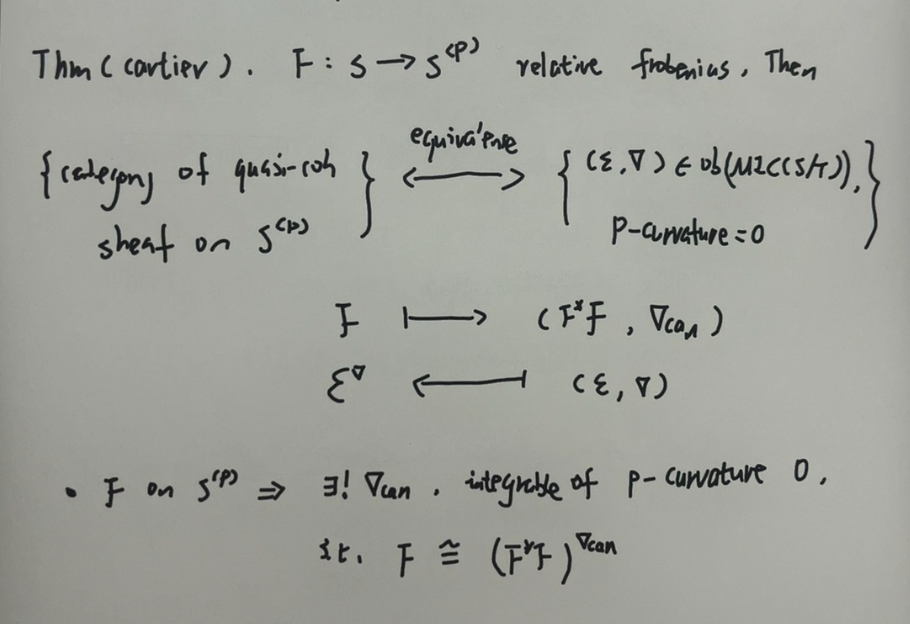 Thm (cartier). F : S → S^(p) relative frobenius. Then
{category of quasi-coh sheaf on S^(p)} ←equivalense→ {(ℰ, ∇) ∈ ob(MIC(S/T)), p-curvature = 0}
F ↦ (F*F, ∇can)
ℰ^∇ ↤ (ℰ, ∇)
• F on S^(p) ⇒ ∃! ∇can. integrable of p-curvature 0,
s.t. F ≅ (F*F)^∇can